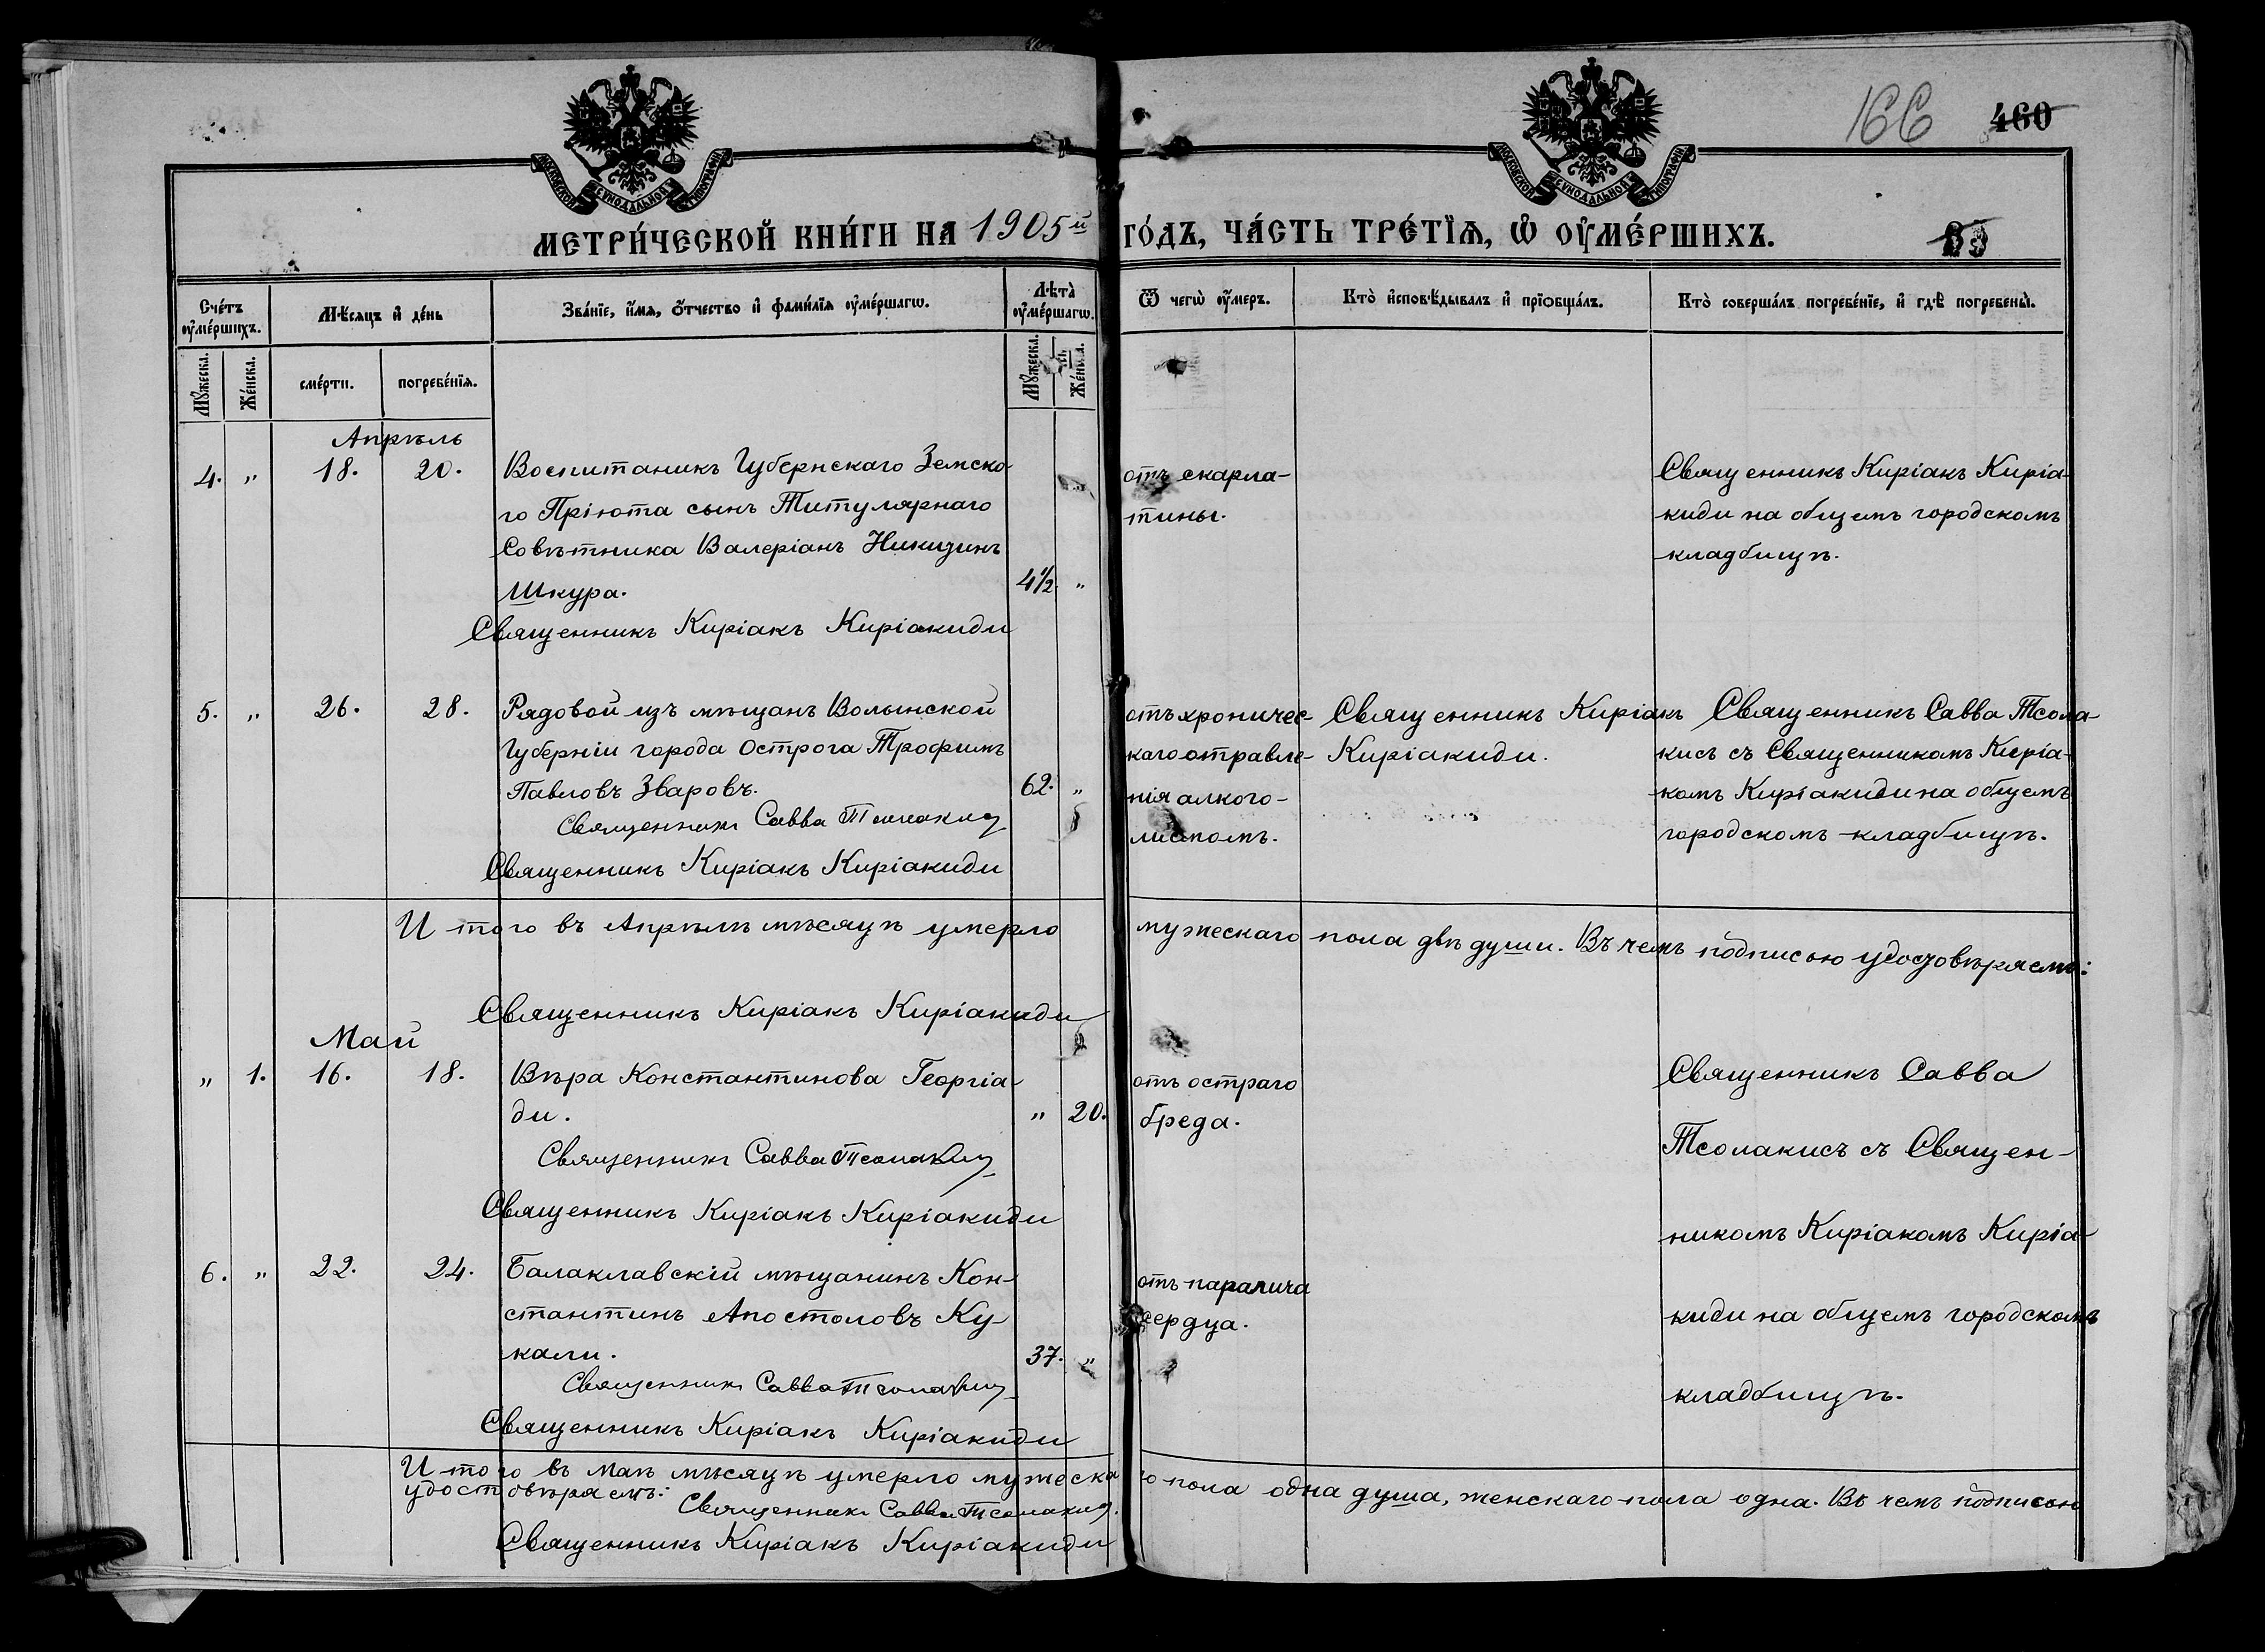 166 460
МОСКОВСКОЙ СѴНОДАЛЬНОЙ ТИПОГРАФІИ
МОСКОВСКОЙ СѴНОДАЛЬНОЙ ТИПОГРАФІИ
МЕТРИ́ЧЕСКОЙ КНИ́ГИ НА 1905й ГО́ДЪ, ЧА́СТЬ ТРЕ́ТЇѦ, Ѡ҆ ОУ҆МЕ́РШИХЪ.
Сче́тъ оу҆ме́ршихъ.
Мѣ́сяцъ и҆ де́нь
Зва́нїе, и҆́мѧ, ѻ҆́тчество и҆ фами́лїѧ оу҆ме́ршагѡ.
Лѣ́та оу҆ме́ршагѡ.
Ѿ чегѡ̀ оу҆́меръ.
Кто̀ и҆сповѣ́дывалъ и҆ прїѡбща́лъ.
Кто̀ соверша́лъ погребе́нїе, и҆ гдѣ̀ погребены̀.
Мꙋ́жеска.
Же́нска.
сме́рти.
погребе́нїѧ.
Мꙋ́жеска.
Же́нска.
Апрѣль
4. " 18. 20.
Воспитаникъ Губернскаго Земско-
го Пріюта сынъ Титулярнаго
Совѣтника Валеріанъ
Шкура. 4½. "
Священникъ Киріакъ Киріакиди
отъ скарла-
тины.
Священникъ Киріакъ Киріа-
киди на общемъ городскомъ
кладбищѣ.
5. " 26. 28.
Рядовой изъ мѣщанъ Волынской
Губерніи города Острога Трофимъ
Павловъ Зваровъ. 62. "
Священникъ Савва Тсолакис
Священникъ Киріакъ Киріакиди
отъ хроничес-
каго отравле-
нія алкого-
лизмомъ.
Священникъ Киріакъ
Киріакиди.
Священникъ Савва Тсола-
кисъ съ Священникомъ Киріа-
комъ Киріакиди на общемъ
городскомъ кладбищѣ.
Итого въ Апрѣлѣ мѣсяцѣ умерло мужескаго пола двѣ души. Въ чемъ подписью удостовѣряемъ:
Священникъ Киріакъ Киріакиди
Май
" 1. 16. 18.
Вѣра Константинова Георгіа-
ди. " 20.
Священникъ Савва Тсолакис
Священникъ Киріакъ Киріакиди
отъ остраго
бреда.
Священникъ Савва
Тсолакисъ съ Священ-
никомъ Киріакомъ Киріа-
киди на общемъ городскомъ
кладбищѣ.
6. " 22. 24.
Балаклавскій мѣщанинъ Кон-
стантинъ Апостоловъ Ку-
кали. 37. "
Священникъ Савва Тсолакис
Священникъ Киріакъ Киріакиди
отъ паралича
сердца.
Итого въ Маѣ мѣсяцѣ умерло мужескаго пола одна душа, женскаго пола одна. Въ чемъ подписью
удостовѣряемъ:
Священникъ Савва Тсолакис.
Священникъ Киріакъ Киріакиди